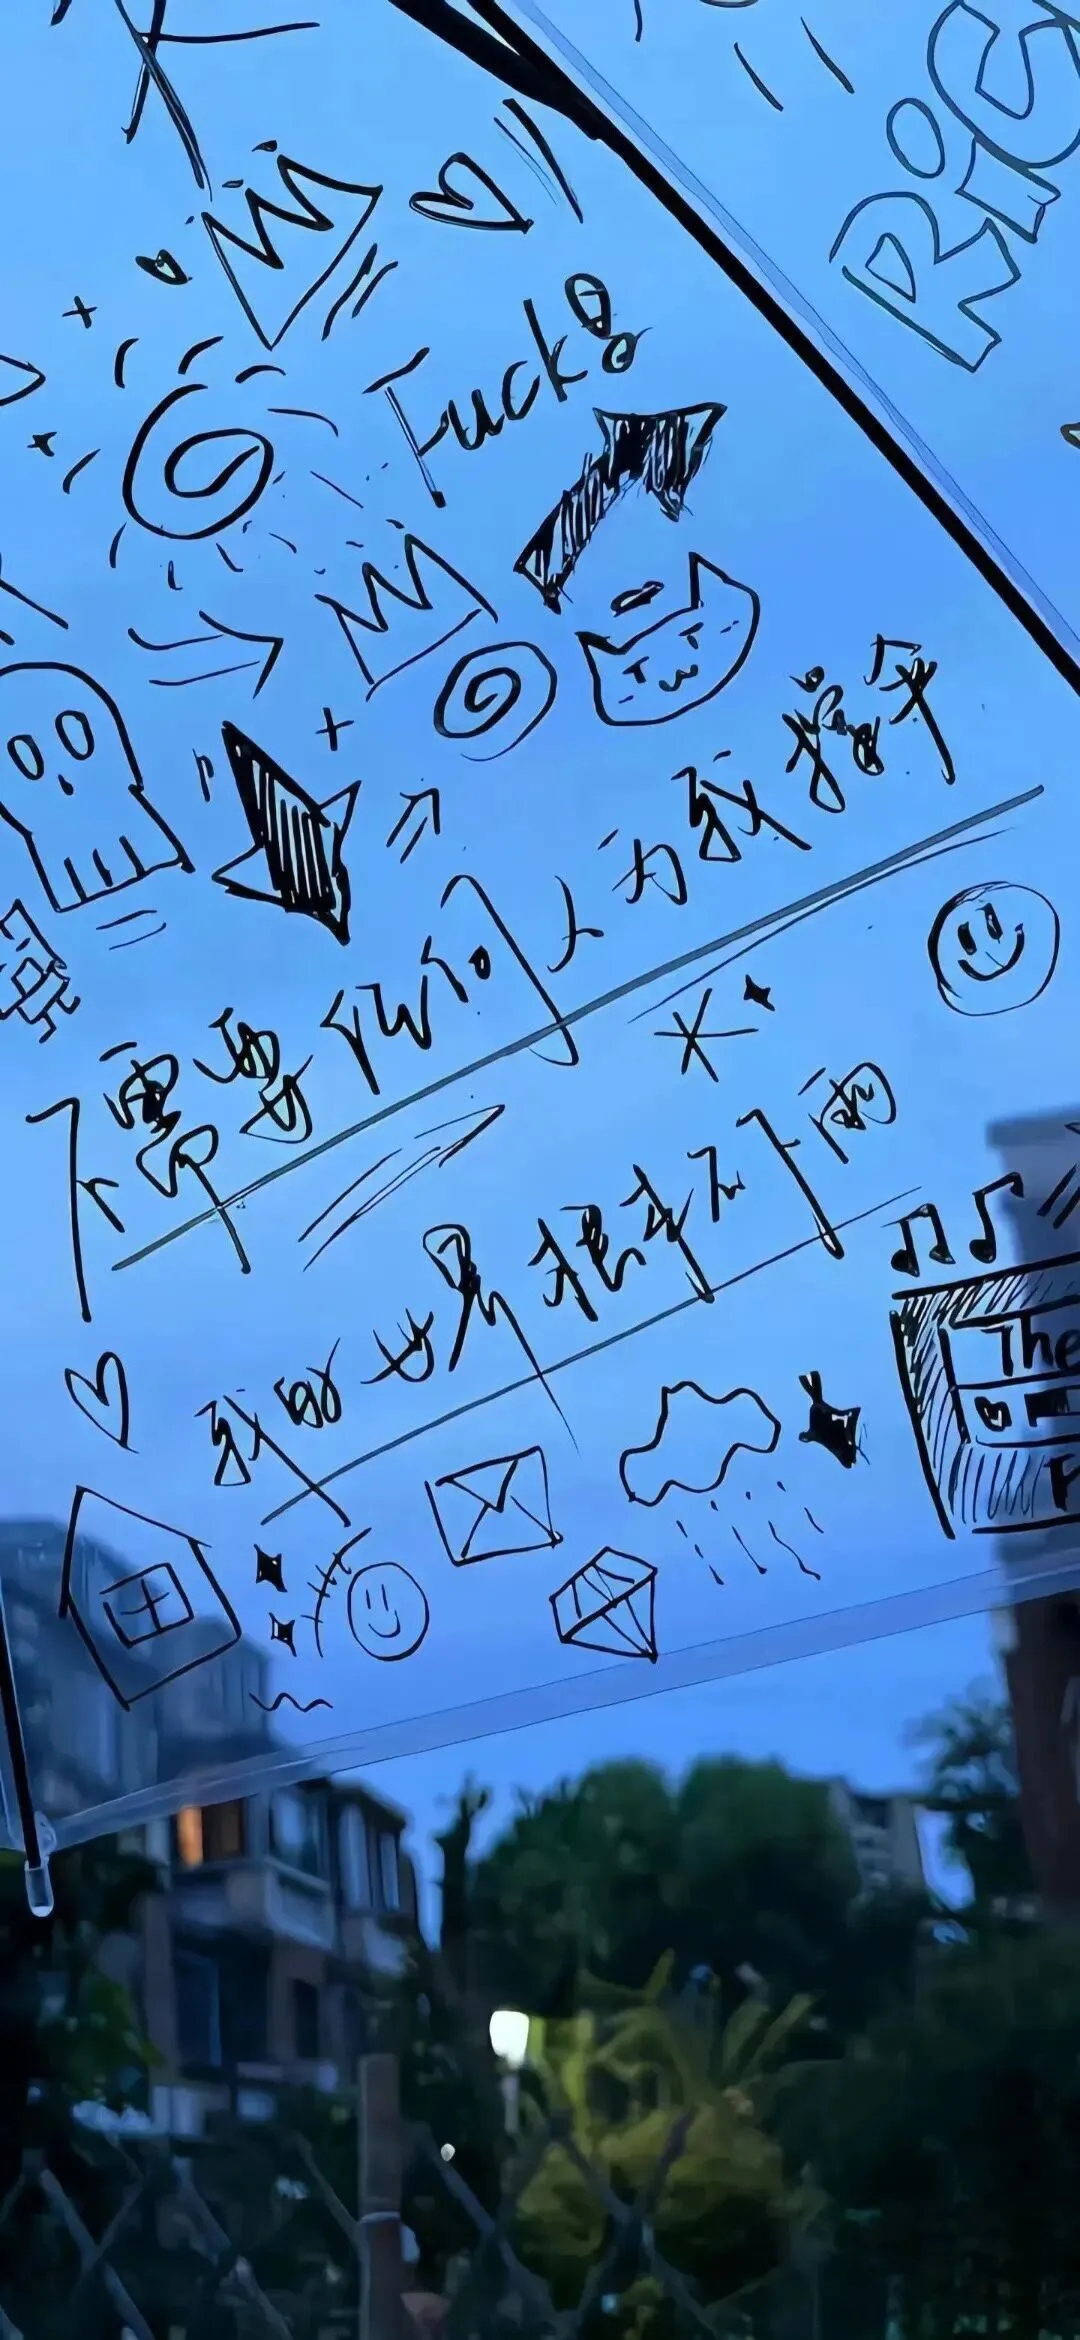 Ric
Fuck
不需要任何人为我撑伞
我的世界根本不下雨
The
F